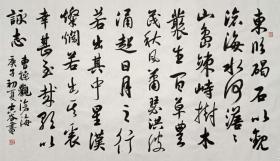 東臨碣石以觀
滄海水何澹澹
山島竦峙樹木
叢生百草豐
茂秋風蕭瑟洪波
涌起日月之行
若出其中星漢
燦爛若出其裏
幸甚至哉歌以
詠志
曹操觀滄海
庚子初夏書